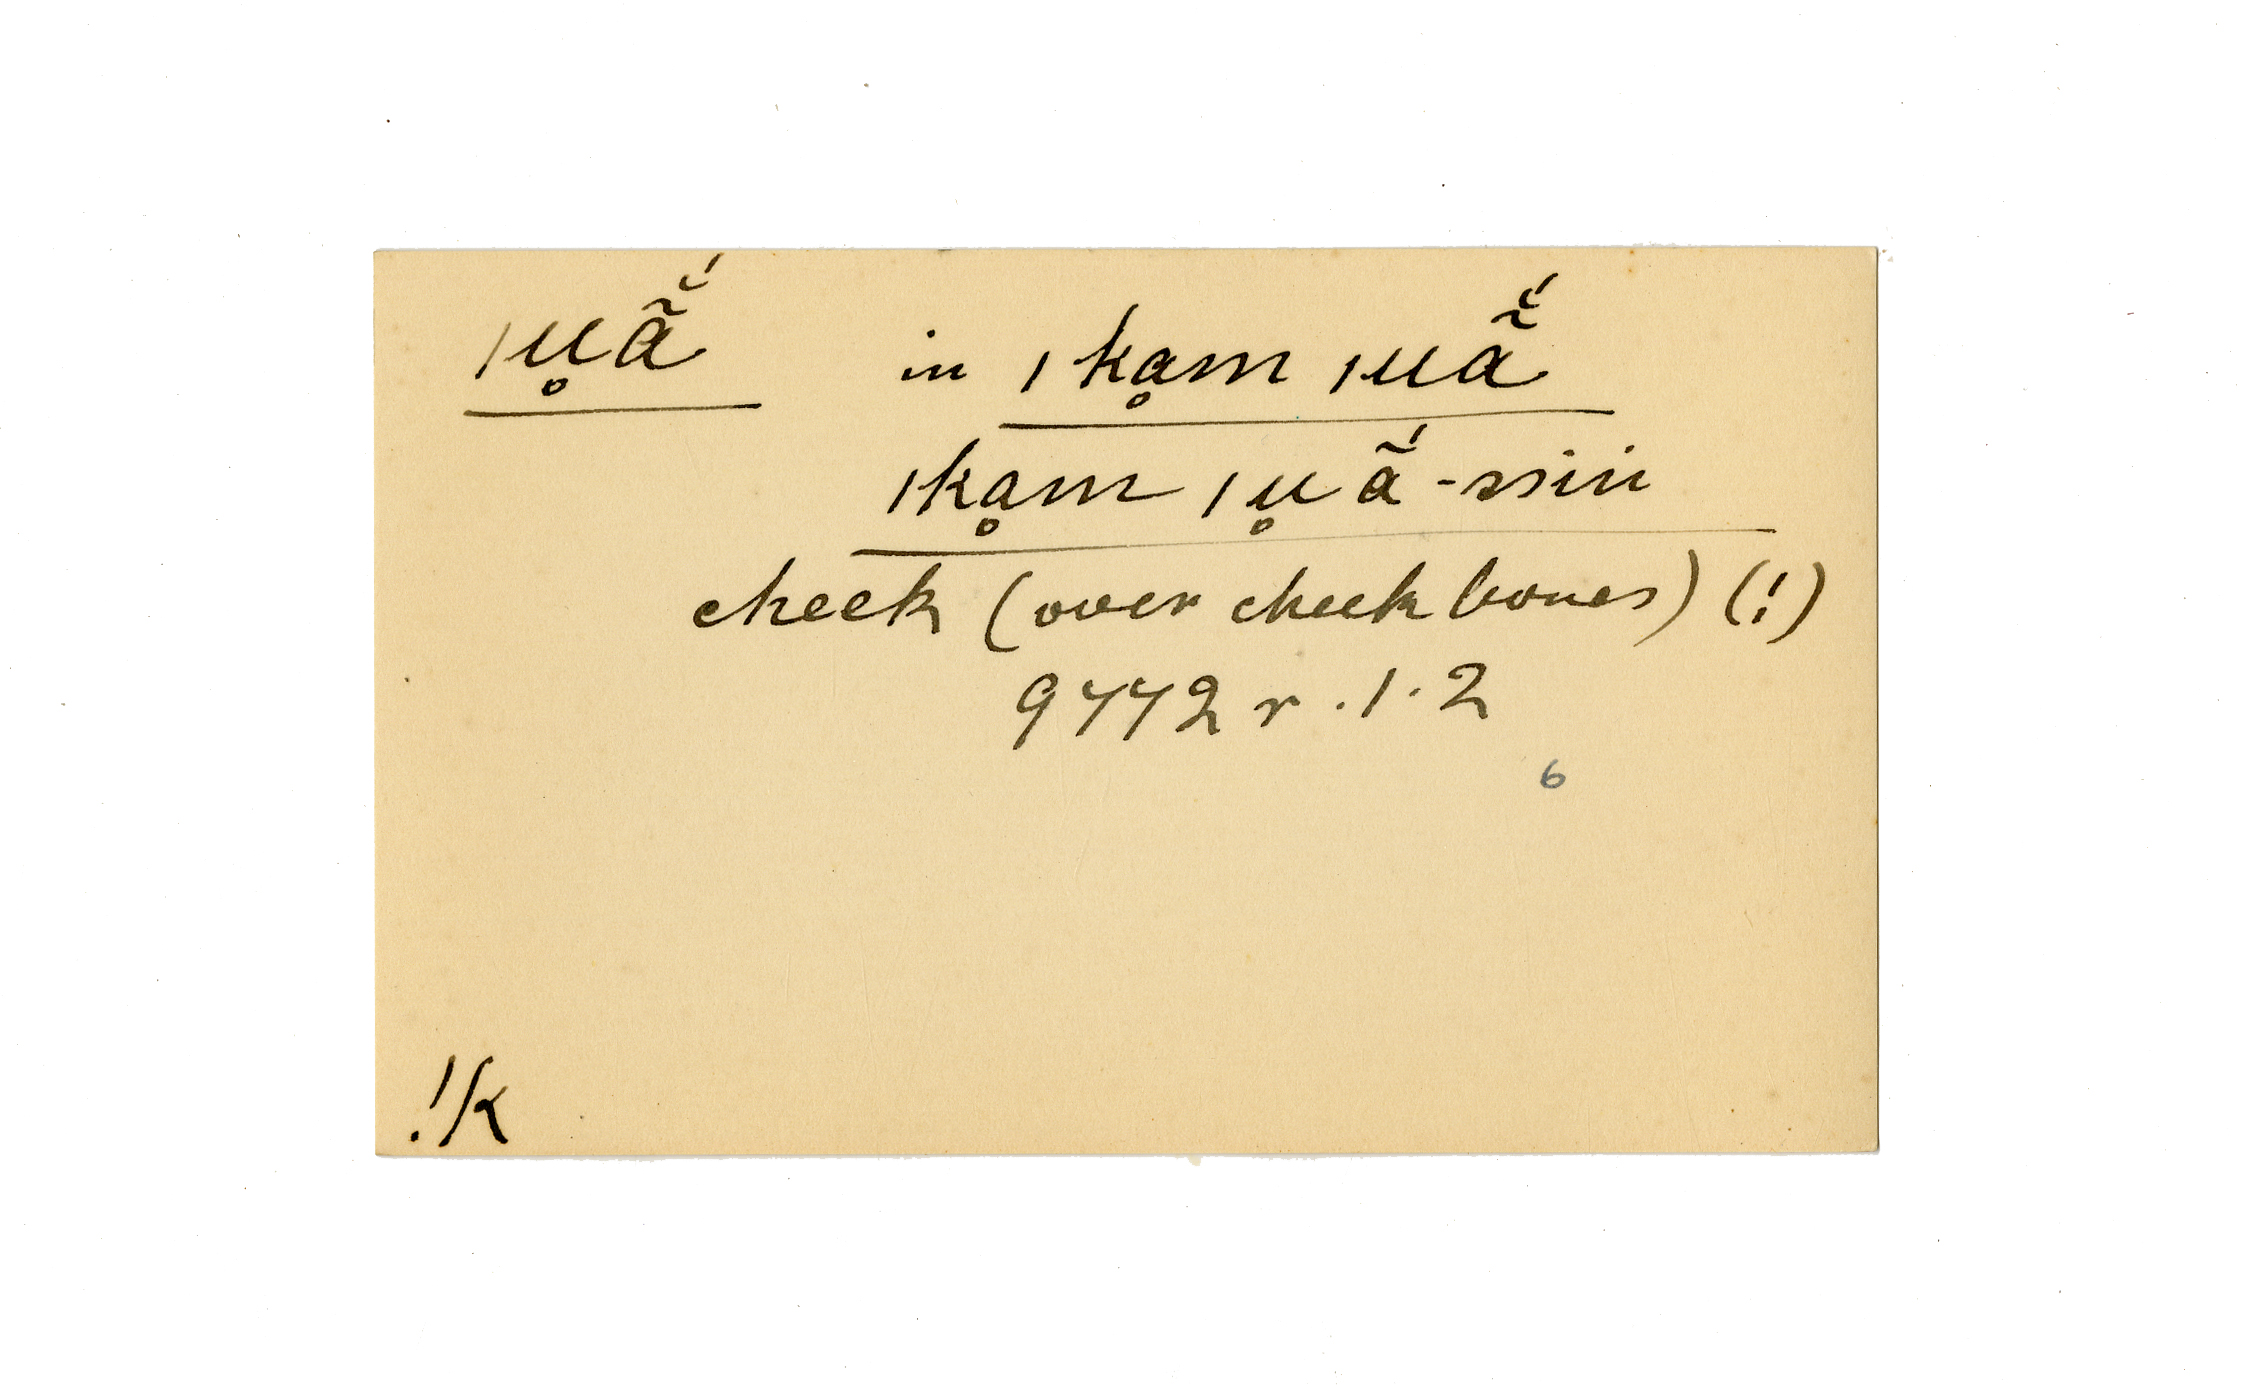 ǀu̥ã̆́ in ǀkḁm ǀuã̆́
ǀkḁm ǀu̥ã́-ssin
cheek (over cheek bones) (!)
9442 r. 1. 2
6
!k